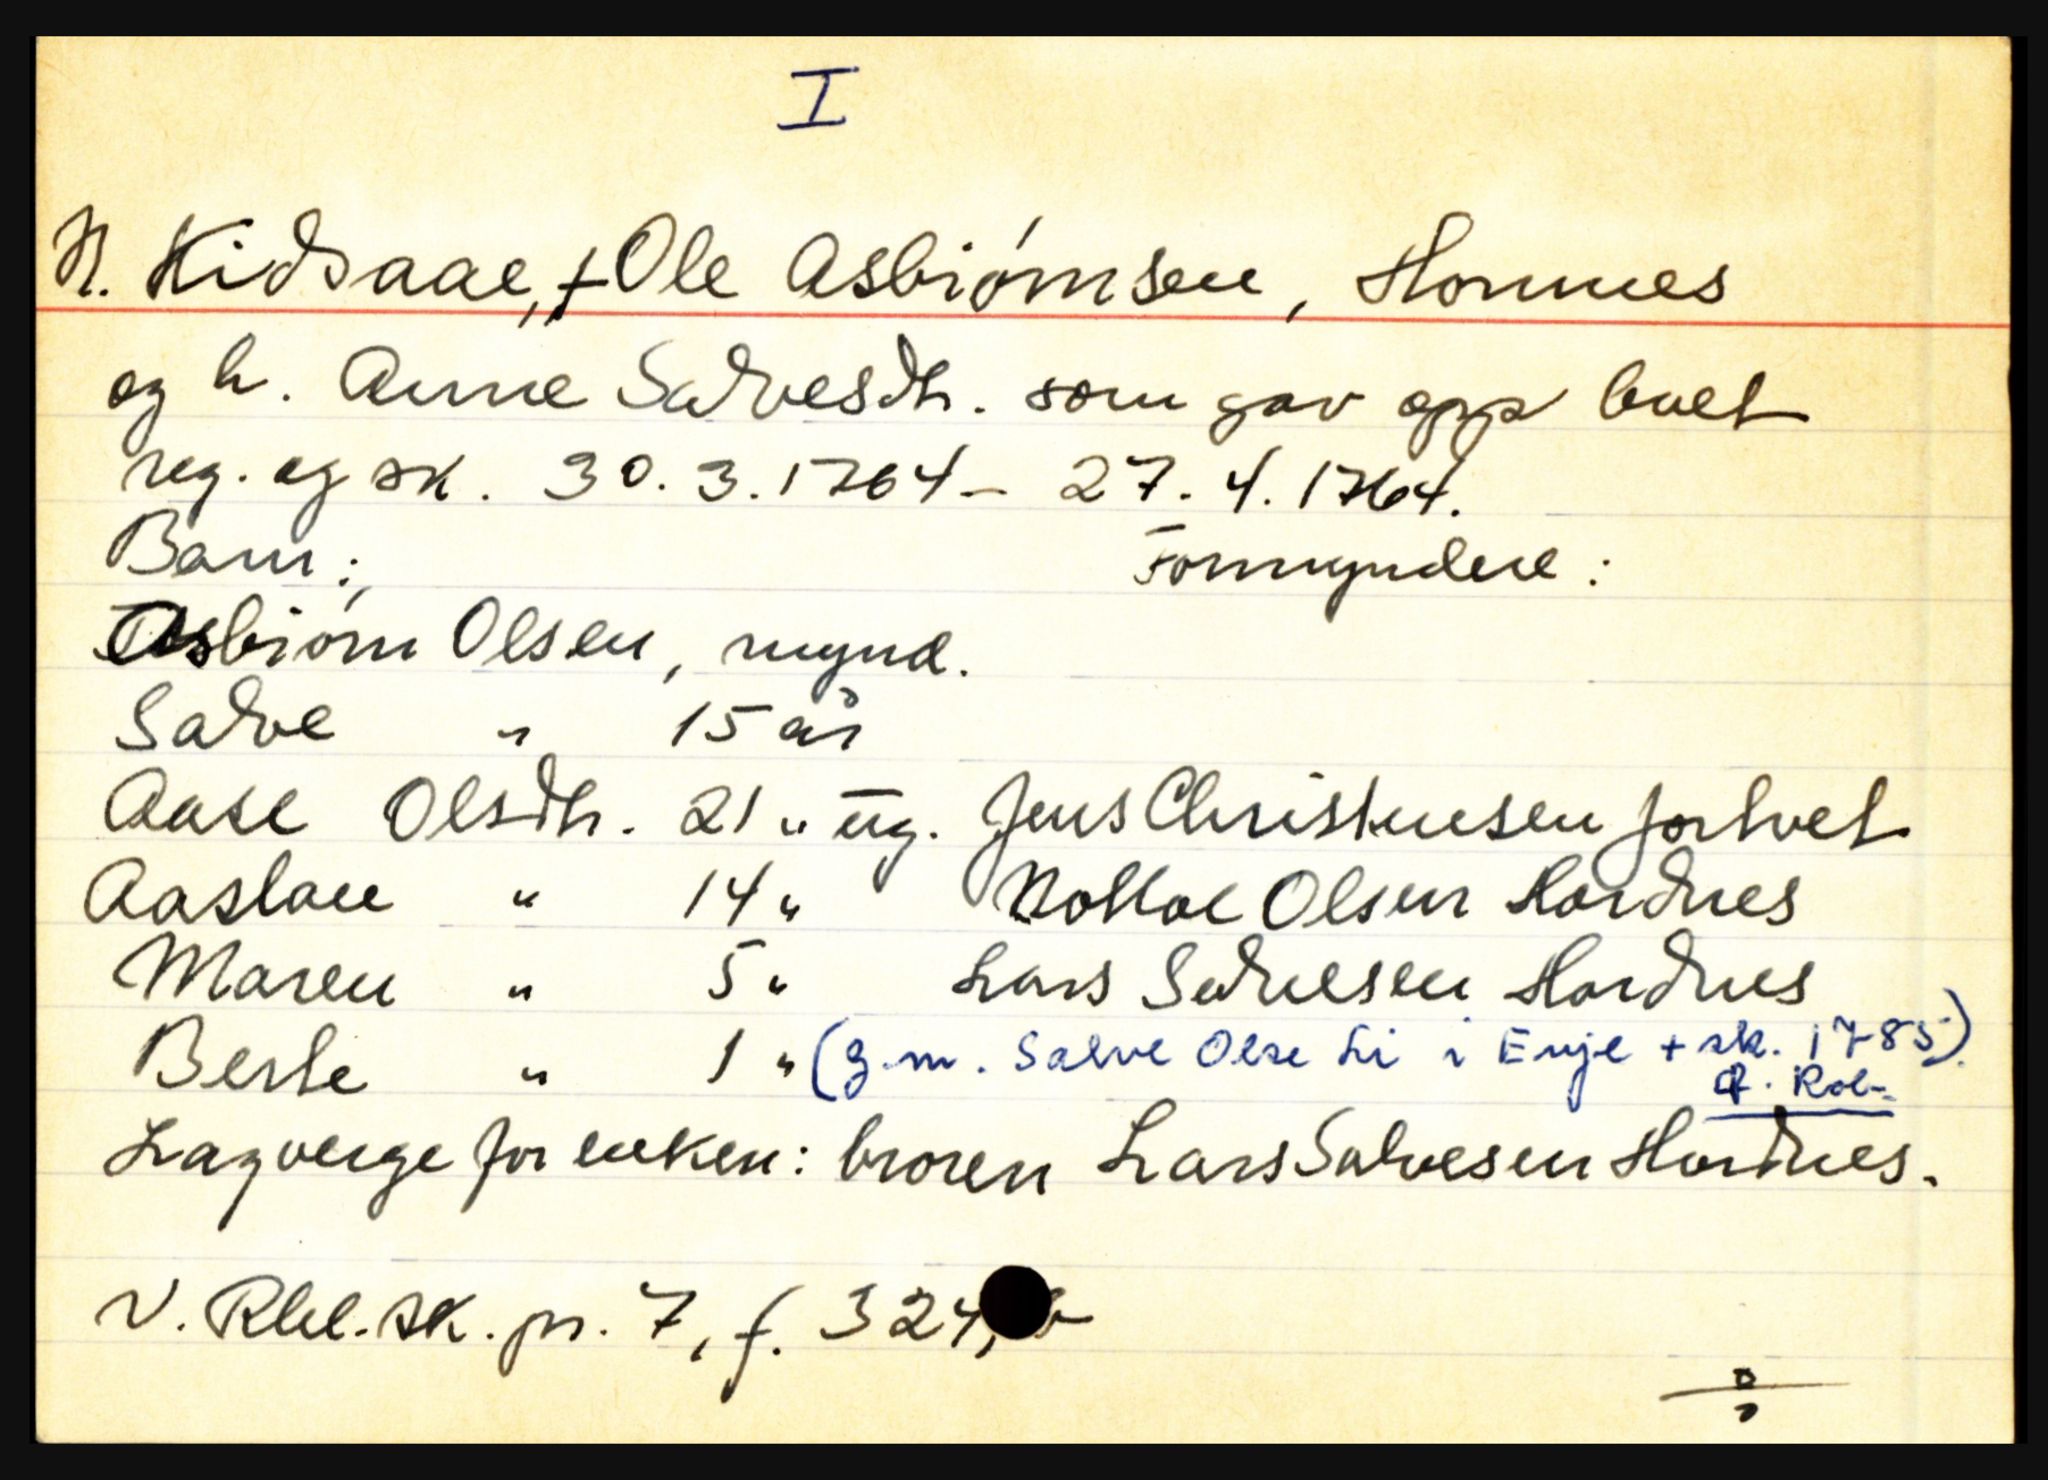 I
N. Kidsaae, + Ole Asbiørnsen, Hornnes
og h. Anne Salvesdtr. som gav opp boet
reg. og sk. 30.3.1764 – 27.4.1764.
Barn: Formyndere:
Asbiørn Olsen, mynd.
Salve " 15 år
Aase Olsdtr. 21 " ug. Jens Christensen Fortvet
Aaslau " 14 " Olsen Hordnes
Maren " 5 " Lars Salvesen Hordnes
Berte " 1 " (g.m. Salve Olse Li i Evje + sk. 1785).
Lagverge for enken: broren Lars Salvesen Hordnes.
V. Rbl. sk. pr. 7, f. 324, b